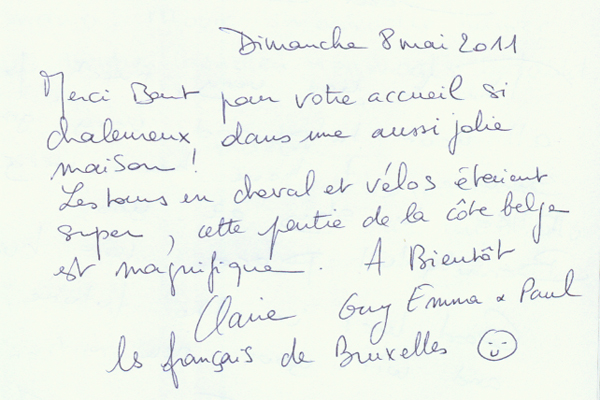 Dimanche 8 mai 2011
Merci Bart pour votre accueil si
chaleureux, dans une aussi jolie
maison !
Les tours en cheval et vélos étaient
super, cette partie de la côte belge
est magnifique. A Bientôt
Claire Guy Emma & Paul
les français de Bruxelles